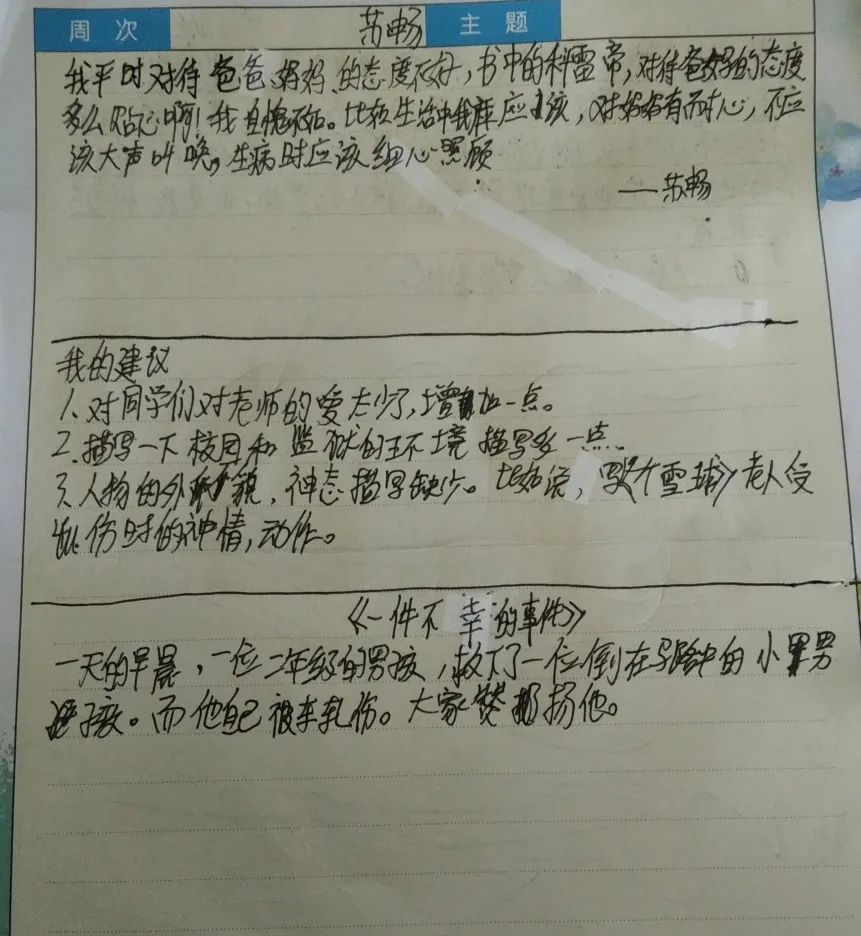 周次 苏畅 主题
我平时对待爸爸妈妈的态度不好,书中的科雷帝,对待爸妈的态度
多么贴心啊!我自愧不如。比较生活中我应该,对妈妈有耐心,不应
该大声叫唤,生病时应该细心照顾
——苏畅
我的建议
1、对同学们对老师的爱太少了,增加一点。
2、描写一下校园和监狱的环境描写多一点、
3、人物的外貌,神态描写缺少。比如说,《雪球》老人受
伤时的神情,动作。
《一件不幸的事件》
一天的早晨,一位二年级的男孩,救了一位倒在马路中的小男
孩。而他自己被车轧伤。大家赞扬他。